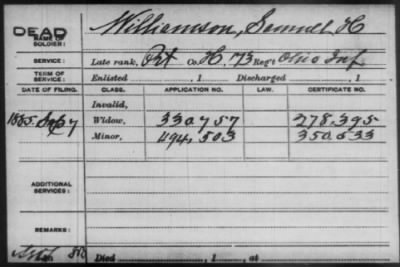 DEAD Williamson, Samuel H
NAME OF SOLDIER:
SERVICE: Late rank, Pvt Co. H, 73 Reg't Ohio Inf
TERM OF SERVICE: Enlisted , 1 Discharged , 1
DATE OF FILING. CLASS. APPLICATION NO. LAW. CERTIFICATE NO.
Invalid,
1885 Widow, 330757 278.395
Minor, 494,503 350.533
ADDITIONAL SERVICES:
REMARKS:
Died , 1 , at